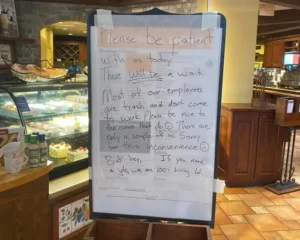 Please be patient
with us today!
There will be a wait.
Most of our employees
are trash and dont come
to work. Please be nice to
the ones that do ☺ There are
only a couple of us. Sorry
for this Inconvenience ☹
But hey, If you need
a job, we are 100% hiring